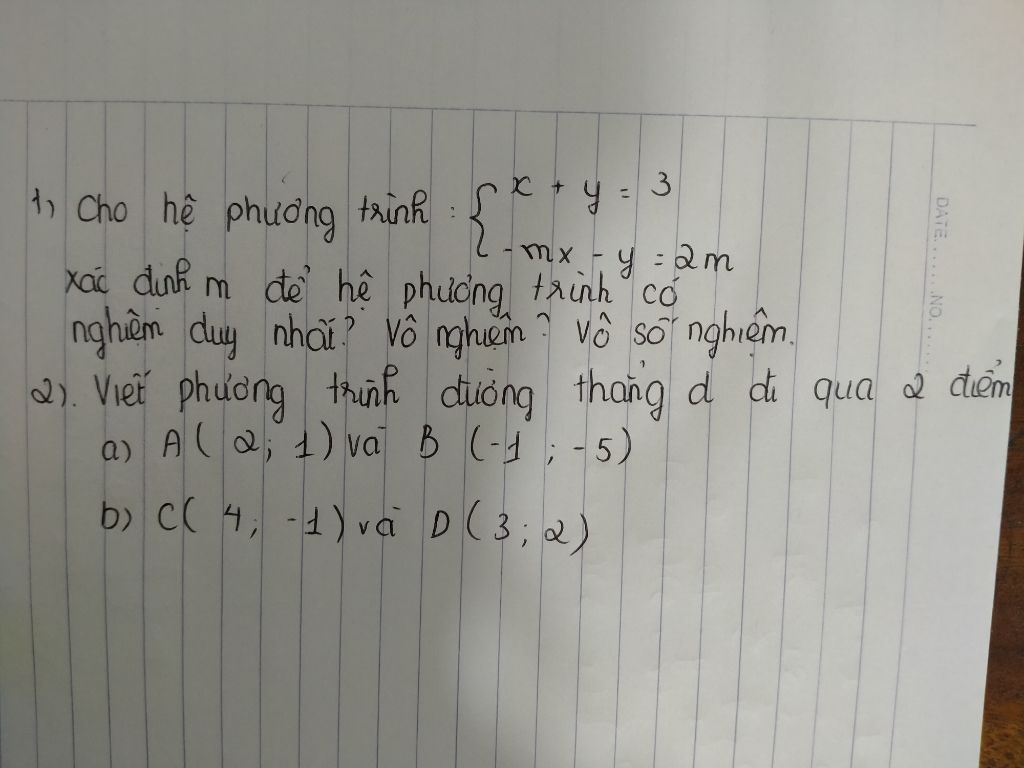 1) Cho hệ phương trình : { x + y = 3
- mx - y = 2m
xác định m để hệ phương trình có
nghiệm duy nhất? Vô nghiệm? Vô số nghiệm.
2). Viết phương trình đường thẳng d đi qua 2 điểm
a) A ( 2; 1) và B (-1 ; -5)
b) C( 4; -1) và D ( 3 ; 2)
DATE.......NO.......